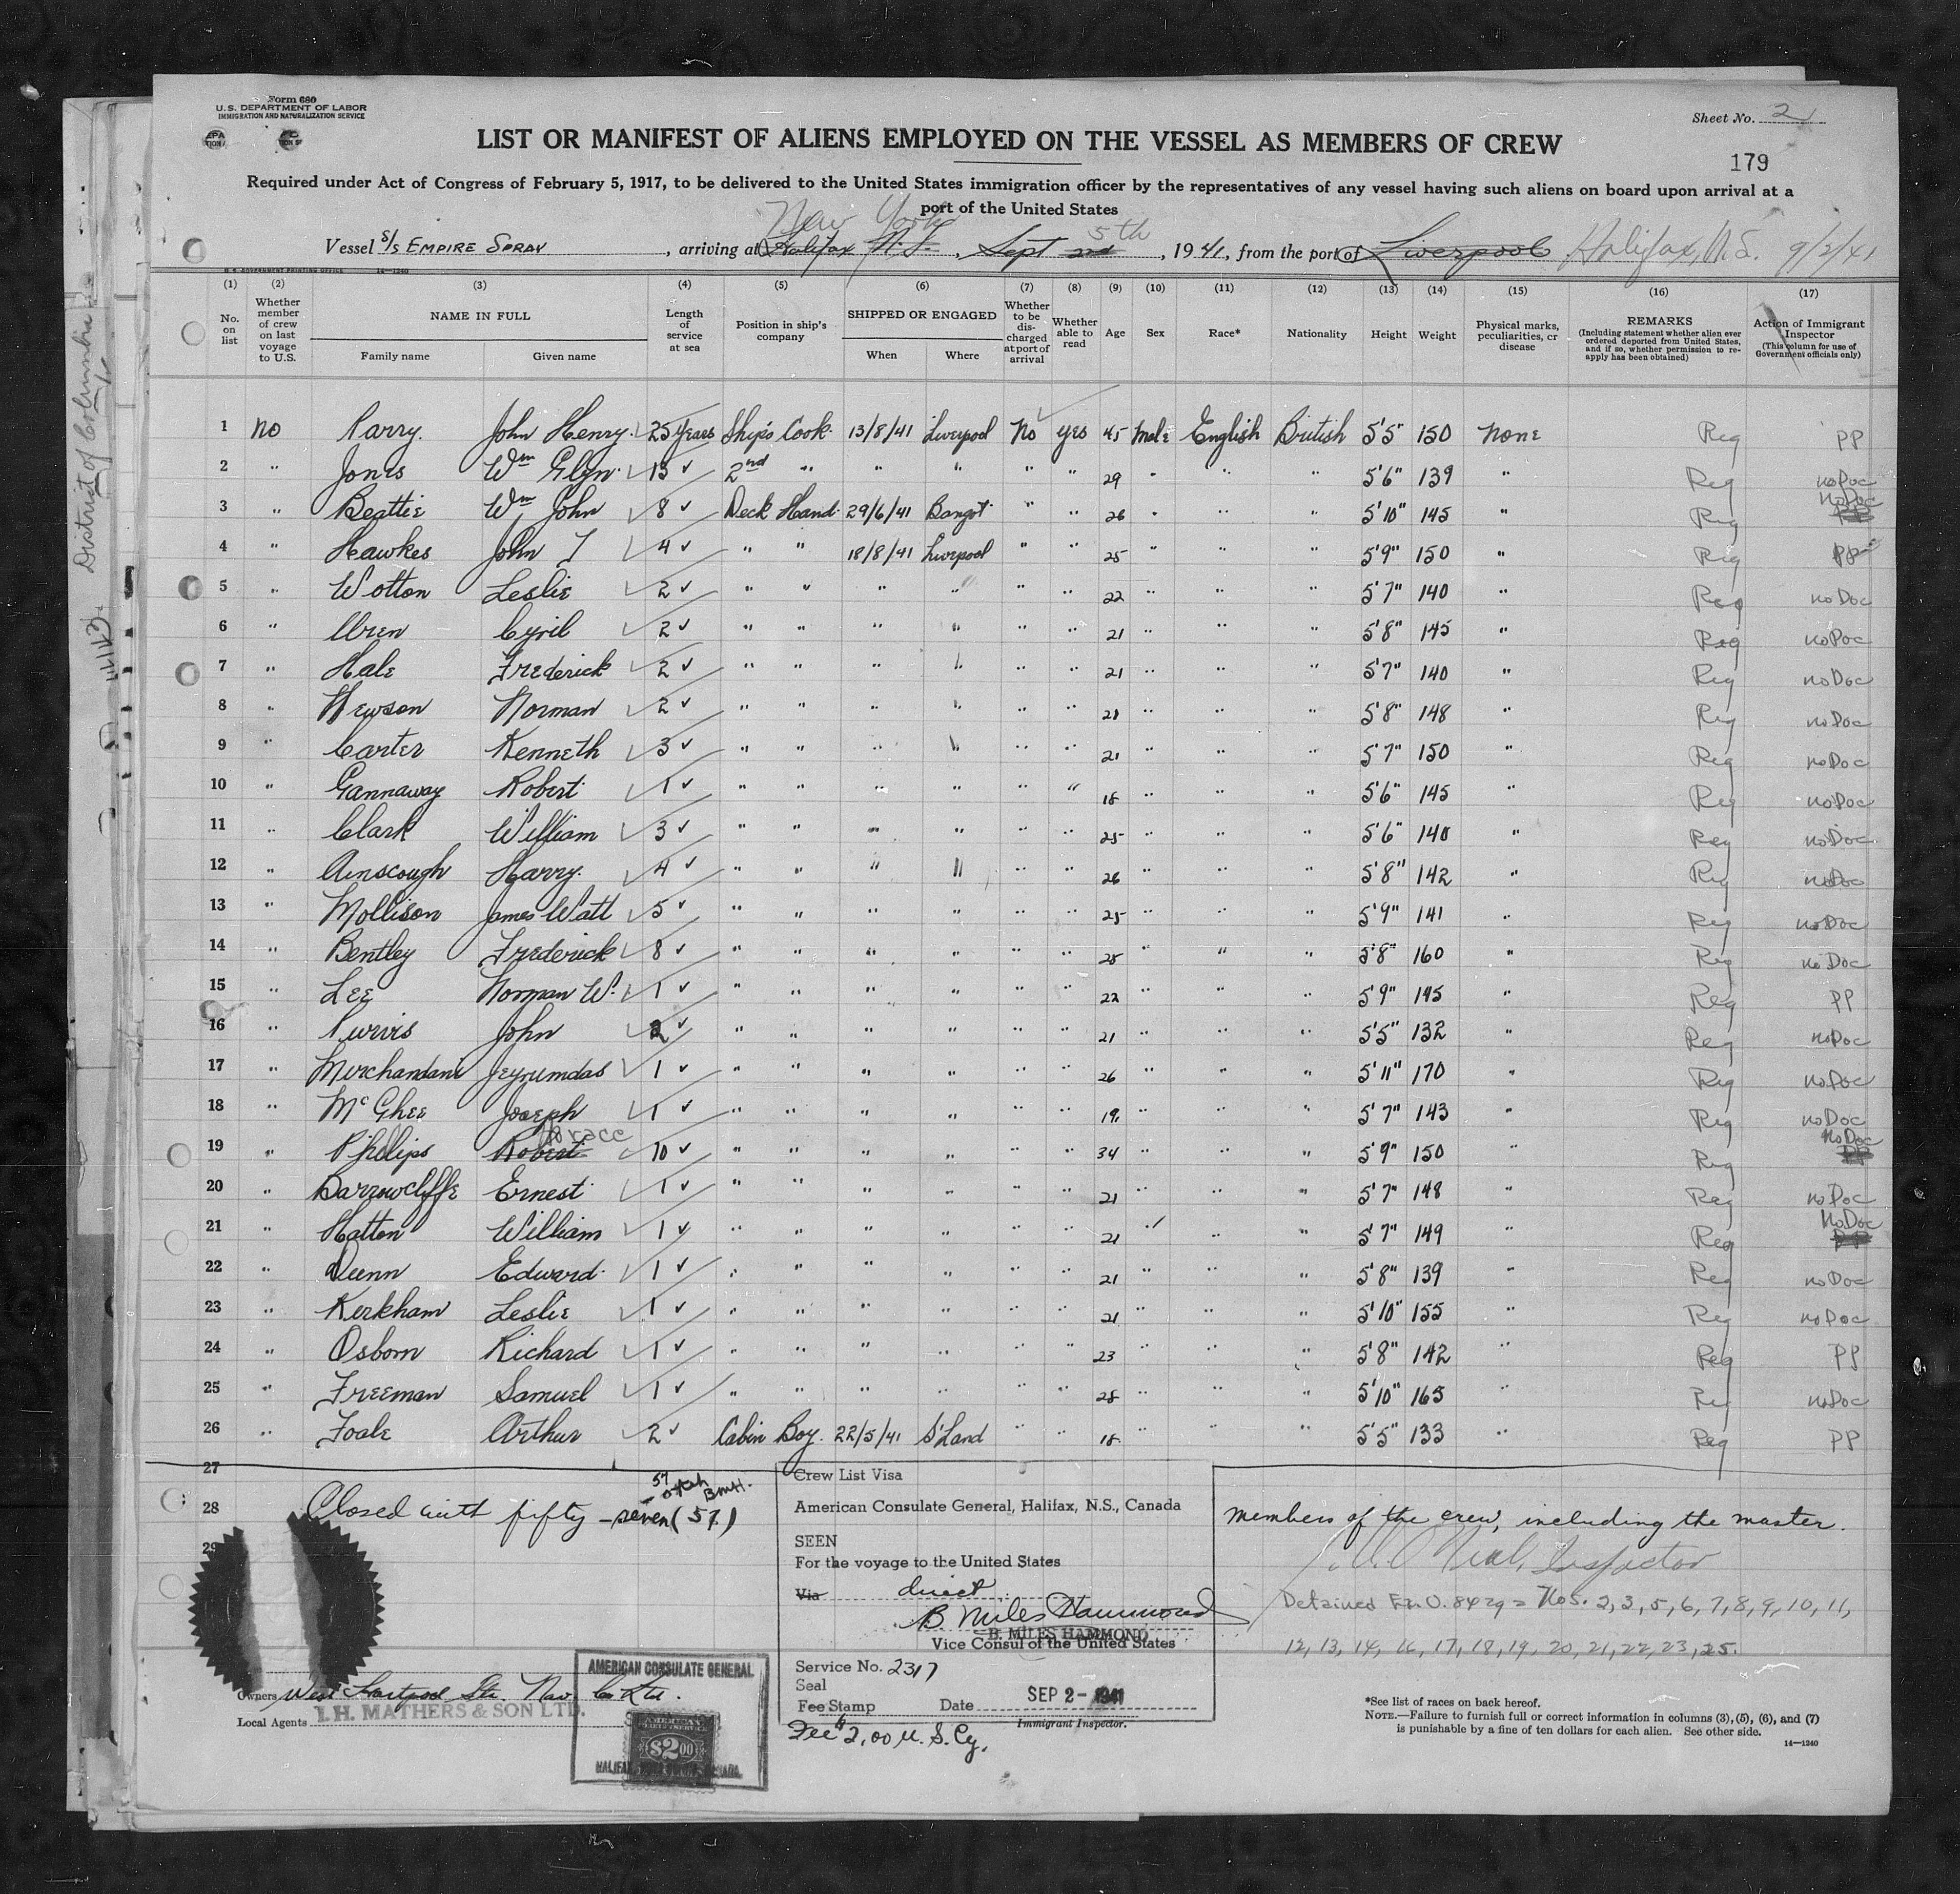 Form 680
U.S. DEPARTMENT OF LABOR
IMMIGRATION AND NATURALIZATION SERVICE
Sheet No. 2
LIST OR MANIFEST OF ALIENS EMPLOYED ON THE VESSEL AS MEMBERS OF CREW
179
Required under Act of Congress of February 5, 1917, to be delivered to the United States immigration officer by the representatives of any vessel having such aliens on board upon arrival at a
port of the United States
New York 5th
Vessel S/S EMPIRE SPRAY, arriving at Halifax N.S., Sept 2nd, 1941, from the port of Liverpool Halifax, N.S. 9/2/41
U. S. GOVERNMENT PRINTING OFFICE 14—1240
(1) (2) (3) (4) (5) (6) (7) (8) (9) (10) (11) (12) (13) (14) (15) (16) (17)
No. on list
Whether member of crew on last voyage to U.S.
NAME IN FULL
Family name
Given name
Length of service at sea
Position in ship's company
SHIPPED OR ENGAGED
When
Where
Whether to be discharged at port of arrival
Whether able to read
Age
Sex
Race*
Nationality
Height
Weight
Physical marks, peculiarities, or disease
REMARKS
(Including statement whether alien ever ordered deported from United States, and if so, whether permission to reapply has been obtained)
Action of Immigrant Inspector
(This column for use of Government officials only)
1 No Parry John Henry 25 Years Ship's Cook 13/8/41 Liverpool No yes 45 Male English British 5'5" 150 None Reg PP
2 " Jones Wm Glyn 13 2nd " " " " " 29 " " " 5'6" 139 " Reg no Doc
3 " Beattie Wm John 8 Deck Hand 29/6/41 Bangor " " 26 " " " 5'10" 145 " Reg No Doc PP
4 " Hawkes John T 4 " " 18/8/41 Liverpool " " 25 " " " 5'9" 150 " Reg PP
5 " Wotton Leslie 2 " " " " " " 22 " " " 5'7" 140 " Reg no Doc
6 " Uren Cyril 2 " " " " " " 21 " " " 5'8" 145 " Reg no Doc
7 " Hale Frederick 2 " " " " " " 21 " " " 5'7" 140 " Reg no Doc
8 " Hewson Norman 2 " " " " " " 21 " " " 5'8" 148 " Reg no Doc
9 " Carter Kenneth 3 " " " " " " 21 " " " 5'7" 150 Reg no Doc
10 " Gannaway Robert 1 " " " " " " 18 " " " 5'6" 145 " Reg no Doc
11 " Clark William 3 " " " " " " 25 " " " 5'6" 140 " Reg no Doc
12 " Ainscough Harry 4 " " " " " " 26 " " " 5'8" 142 " Reg no Doc
13 " Mollison James Watt 5 " " " " " " 25 " " " 5'9" 141 " Reg no Doc
14 " Bentley Frederick 8 " " " " " " 28 " " " 5'8" 160 " Reg no Doc
15 " Lee Norman W. 1 " " " " " " 22 " " " 5'9" 145 " Reg PP
16 " Purvis John 2 " " " " " " 21 " " " 5'5" 132 " Reg no Doc
17 " Mirchandani Jeyrumdas 1 " " " " " " 26 " " " 5'11" 170 " Reg no Doc
18 " McGhee Joseph 1 " " " " " " 19 " " " 5'7" 143 " Reg no Doc
Horace
19 " Phillips Robert 10 " " " " " " 34 " " " 5'9" 150 " Reg No Doc PP
20 " Barrowcliffe Ernest 1 " " " " " " 21 " " " 5'7" 148 " Reg no Doc
21 " Hatton William 1 " " " " " " 21 " " " 5'7" 149 " Reg No Doc PP
22 " Dunn Edward 1 " " " " " " 21 " " " 5'8" 139 " Reg no Doc
23 " Kirkham Leslie 1 " " " " " " 21 " " " 5'10" 155 " Reg no Doc
24 " Osborn Richard 1 " " " " " " 23 " " " 5'8" 142 " Reg PP
25 " Freeman Samuel 1 " " " " " " 28 " " " 5'10" 165 " Reg no Doc
26 " Foale Arthur 2 Cabin Boy 22/5/41 S'Land " " 18 " " " 5'5" 133 " Reg PP
27
28 Closed with fifty-seven (57) members of the crew, including the master.
57 BMH.
29
Inspector
Detained Nos. 2, 3, 5, 6, 7, 8, 9, 10, 11,
12, 13, 14, 16, 17, 18, 19, 20, 21, 22, 23, 25.
Crew List Visa
American Consulate General, Halifax, N.S., Canada
SEEN
For the voyage to the United States
Via direct
B. Miles Hammond
B. MILES HAMMOND
Vice Consul of the United States
Service No. 2317
Seal
Fee Stamp Date SEP 2 - 1941
Immigrant Inspector.
Fee $2.00 U.S. Cy.
AMERICAN CONSULATE GENERAL
AMERICAN
FOREIGN SERVICE
$2.00
Owners West Hartpool Str. Nav. Co Ltd.
Local Agents I.H. MATHERS & SON LTD.
*See list of races on back hereof.
NOTE.—Failure to furnish full or correct information in columns (3), (5), (6), and (7)
is punishable by a fine of ten dollars for each alien. See other side.
14—1240
District of Columbia